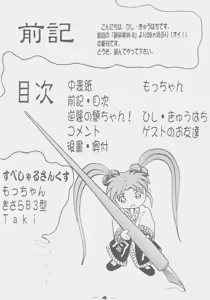 前記
こんにちは、ひし・きゅうはちです。
の新刊です。
どうぞ、読んでやって下さい。
目次
中表紙 もっちゃん
前記・目次
逆襲の額ちゃん! ひし・きゅうはち
コメント ゲストのお友達
後書・奥付
すぺしゃるさんくす
もっちゃん
きさら83型
Taki
4